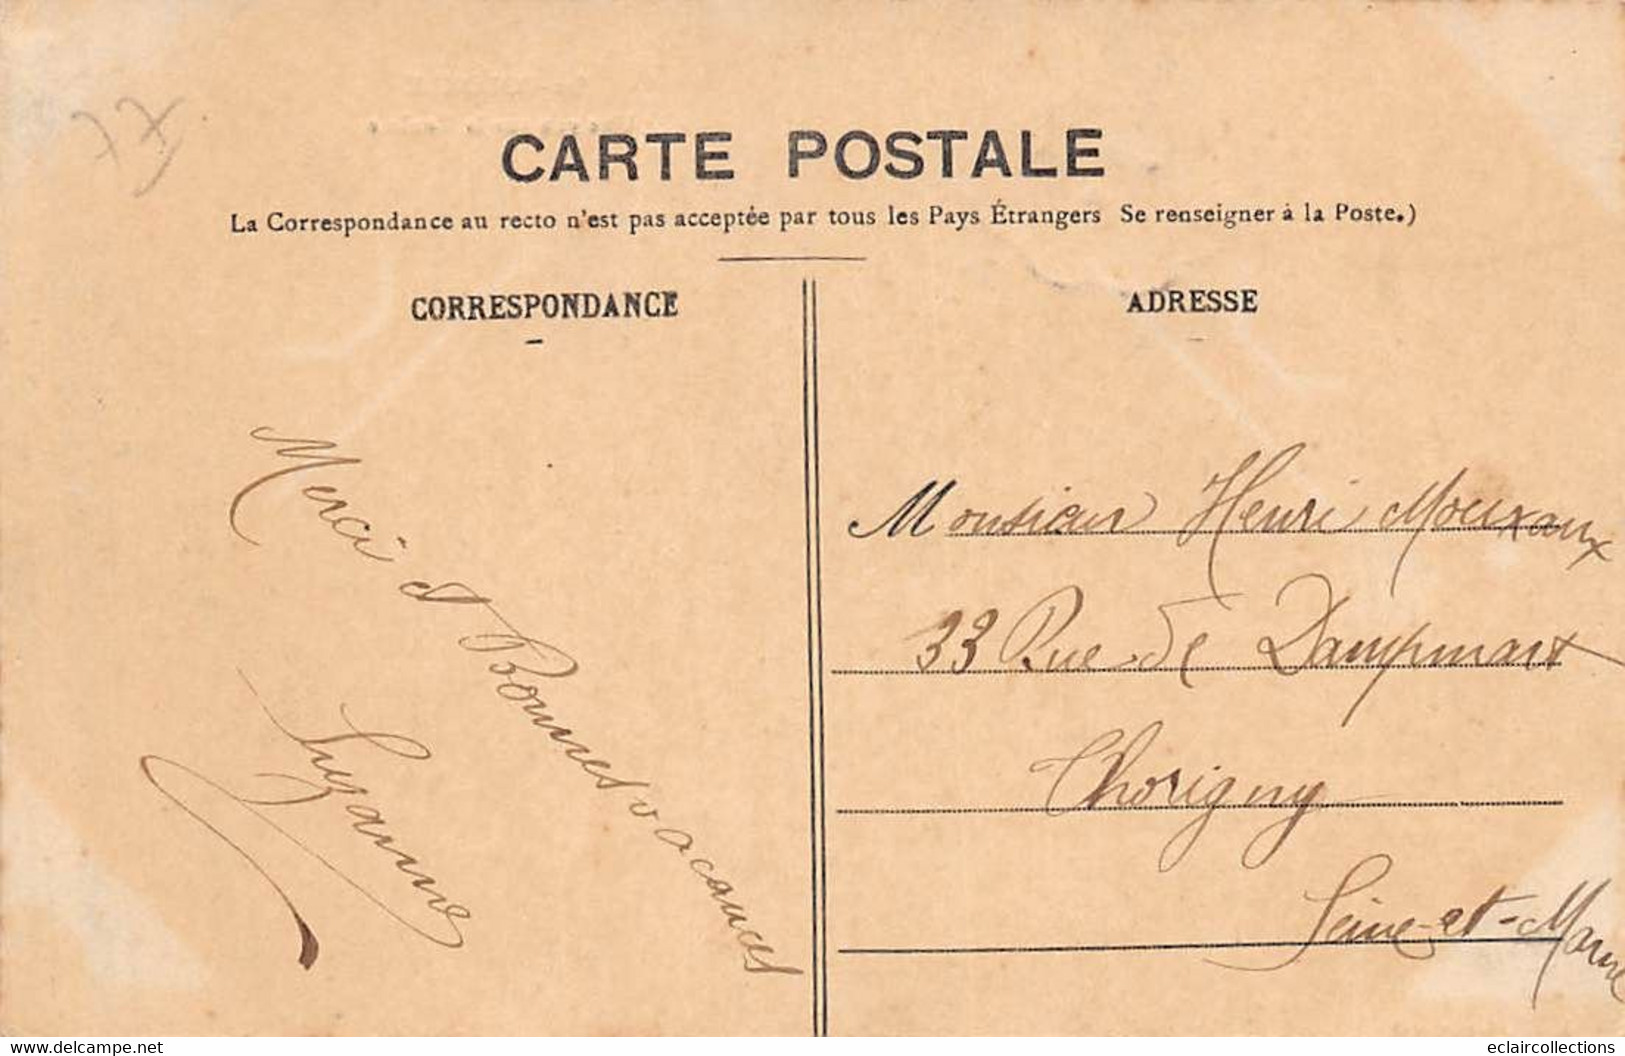 77
CARTE POSTALE
La Correspondance au recto n'est pas acceptée par tous les Pays Étrangers Se renseigner à la Poste.)
CORRESPONDANCE
Merci et Bonnes vacances
Suzanne
ADRESSE
Monsieur Henri Mouxaux
33 Rue de Dampmart
Thorigny
Seine-et-Marne
www.delcampe.net
eclaircollections